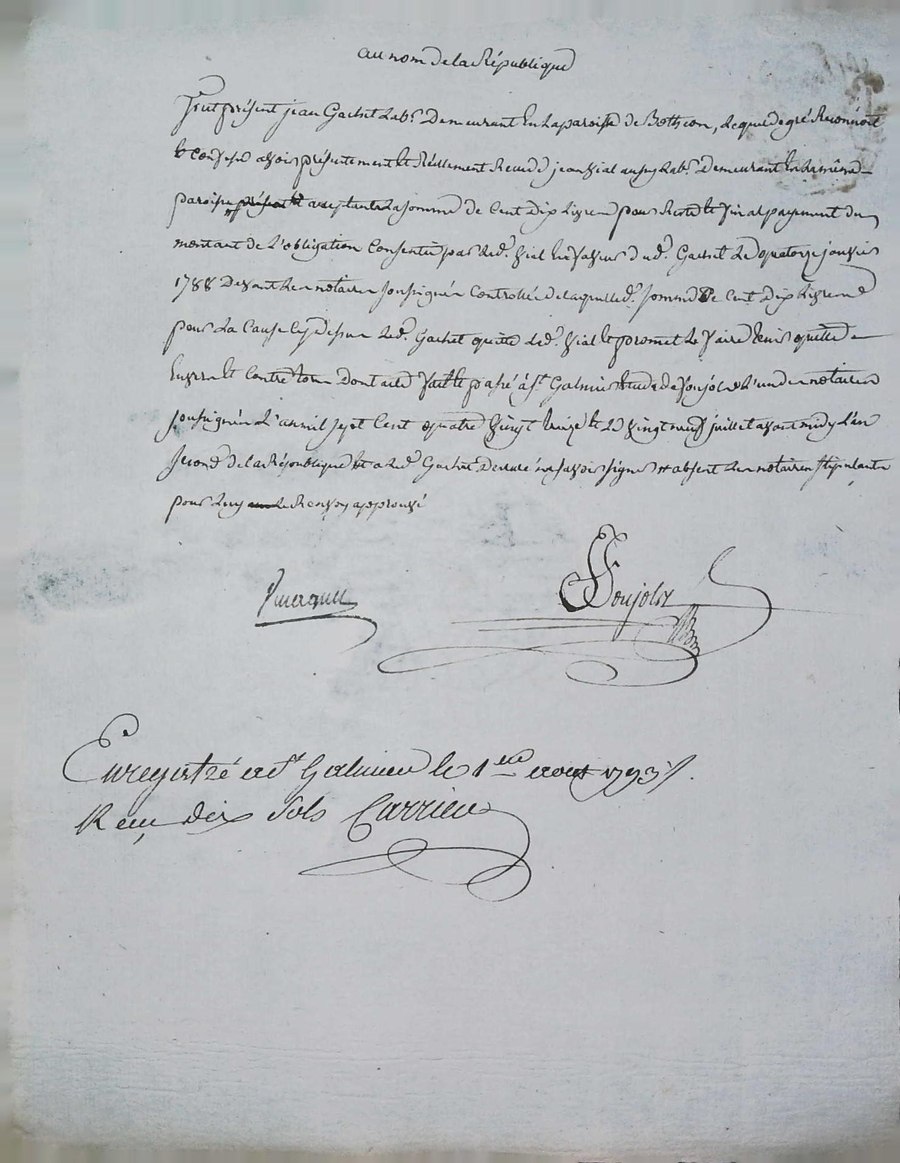 au nom de la République
fut présent jean Gachet lab.r Demeurant en La paroisse de Botheon, Lequel de gré Reconnoit
et Confesse avoir présentement et Réellement Recu de jean Vial aussy Lab.r Demeurant en la même
paroisse présent acceptant La somme de Cent Dix Livres pour Reste et final payement du
montant de L'obligation Consentie par Led.t Vial en faveur dud.t Gachet Le quatorze janvier
1788 Devant Les notaires soussignés Controllée de laquelle d.e somme de Cent Dix Livres
pour La Cause Cy dessus Led.t Gachet quitte Led.t Vial et promet Le faire tenir quitte
Envers et Contre tous Dont acte fait et passé à S.t Galmier Etude de Soujolx L'un des notaires
soussignés L'an mil sept Cent quatre vingt treize et Le vingt neuf juillet avant midy L'an
second de la République et a Led.t Gachet Déclaré ne savoir signer absent Les notaires stipulants
pour Luy Le Renvoy approuvé
Soujolx
Enregistré a S.t Galmier le 1.er aout 1793
Reçu dix sols Carrieu